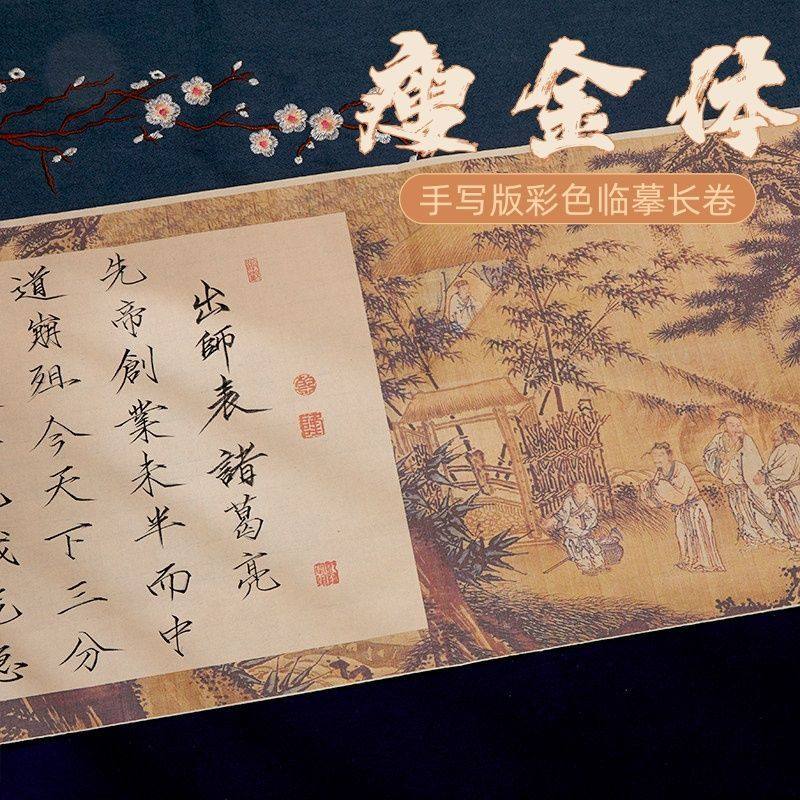 瘦金体
手写版彩色临摹长卷
出師表 諸葛亮
先帝創業未半而中
道崩殂今天下三分